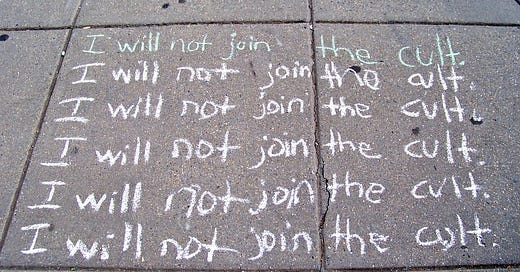 I will not join the cult.
I will not join the cult.
I will not join the cult.
I will not join the cult.
I will not join the cult.
I will not join the cult.